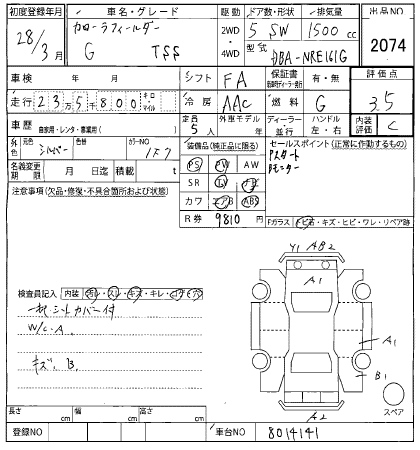 初度登録年月
車名・グレード
駆動
ドア数・形状
排気量
出品NO
28/3月
カローラフィールダー
G TSS
2WD
4WD
5 SW
1500 cc
型式
DBA-NRE161G
2074
車検
年 月
シフト
FA
保証書
有・無
評価点
走行
235千800
キロ
マイル
冷房
AAC
燃料
G
3.5
車歴
自家用・レンタ・事業用( )
定員
5人
外車モデル
年
ディーラー・並行
ハンドル
左・右
内装評価
C
元色
シルバー
色替
カラーNO
1F7
装備品(純正品に限る)
セールスポイント(正常に作動するもの)
名義変更期限
月 日迄
積載
t
PS PW AW
Pスタート
Bモニター
注意事項(欠品・修復・不具合箇所および状態)
SR
カワ エアB ABS
R券
9810
円
Fガラス
トビ石・キズ・ヒビ・ワレ・リペア跡
Y1 AB2
A1
検査員記入
内装
汚レ・スレ・キズ・キレ・コゲ・穴
シートカバー付
W/C.A
キズ、B
A1
B1
スペア
A2
長さ
cm
幅
cm
高さ
cm
登録NO
車台NO
8014141